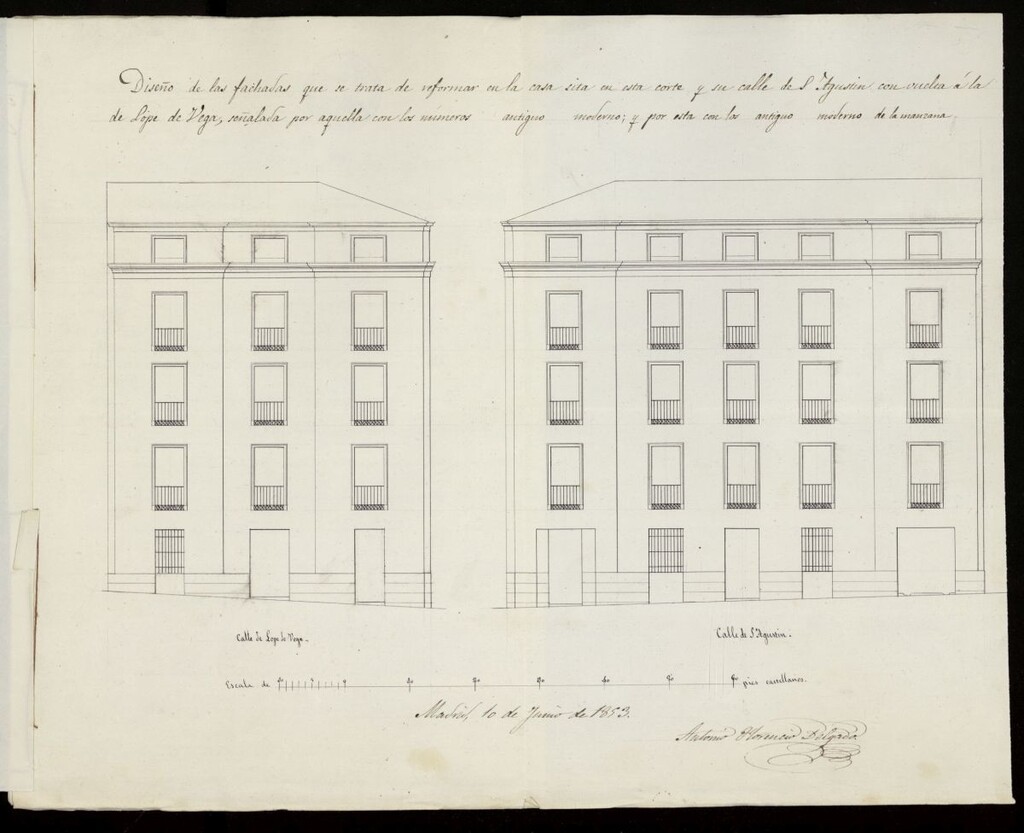 Diseño de las fachadas que se trata de reformar en la casa sita en esta corte y su calle de S. Agustin con vuelta á la
de Lope de Vega, señalada por aquella con los números antiguo moderno; y por esta con los antiguo moderno de la manzana
Calle de Lope de Vega.
Calle de S. Agustin.
Escala de pies castellanos.
Madrid, 10 de Junio de 1853.
Antonio Florencio Delgado